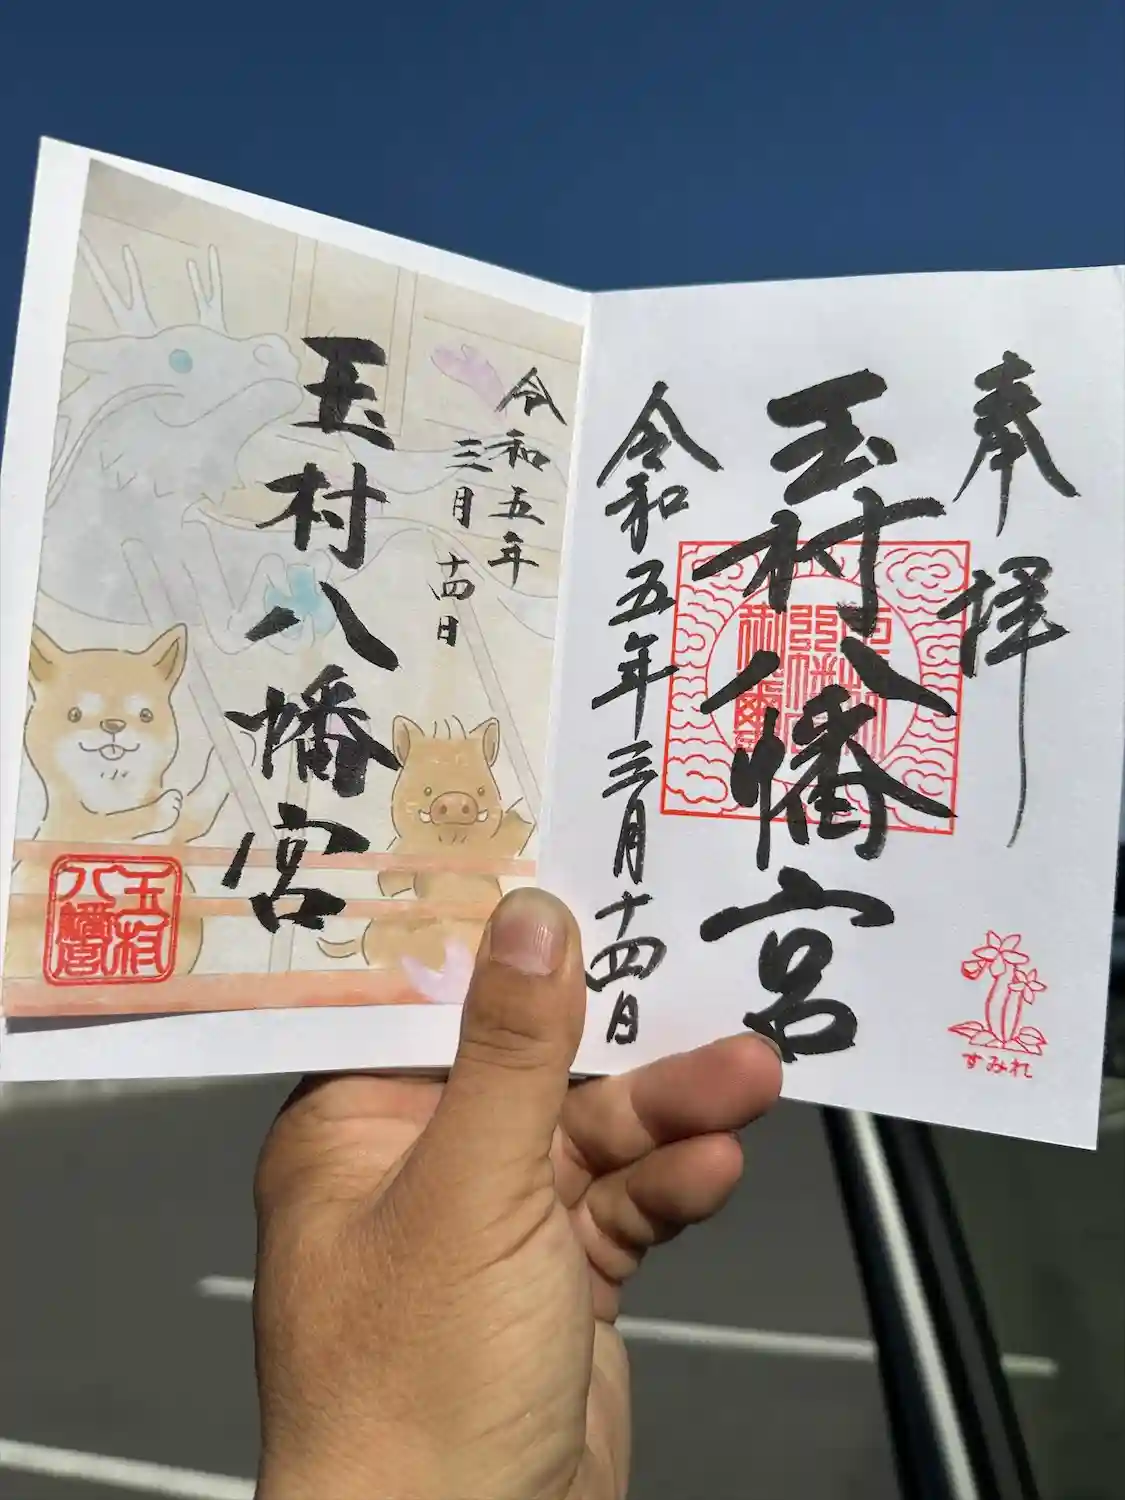 奉拝
玉村八幡宮
令和五年三月十四日
すみれ
令和五年
三月十四日
玉村八幡宮
玉村
八幡宮